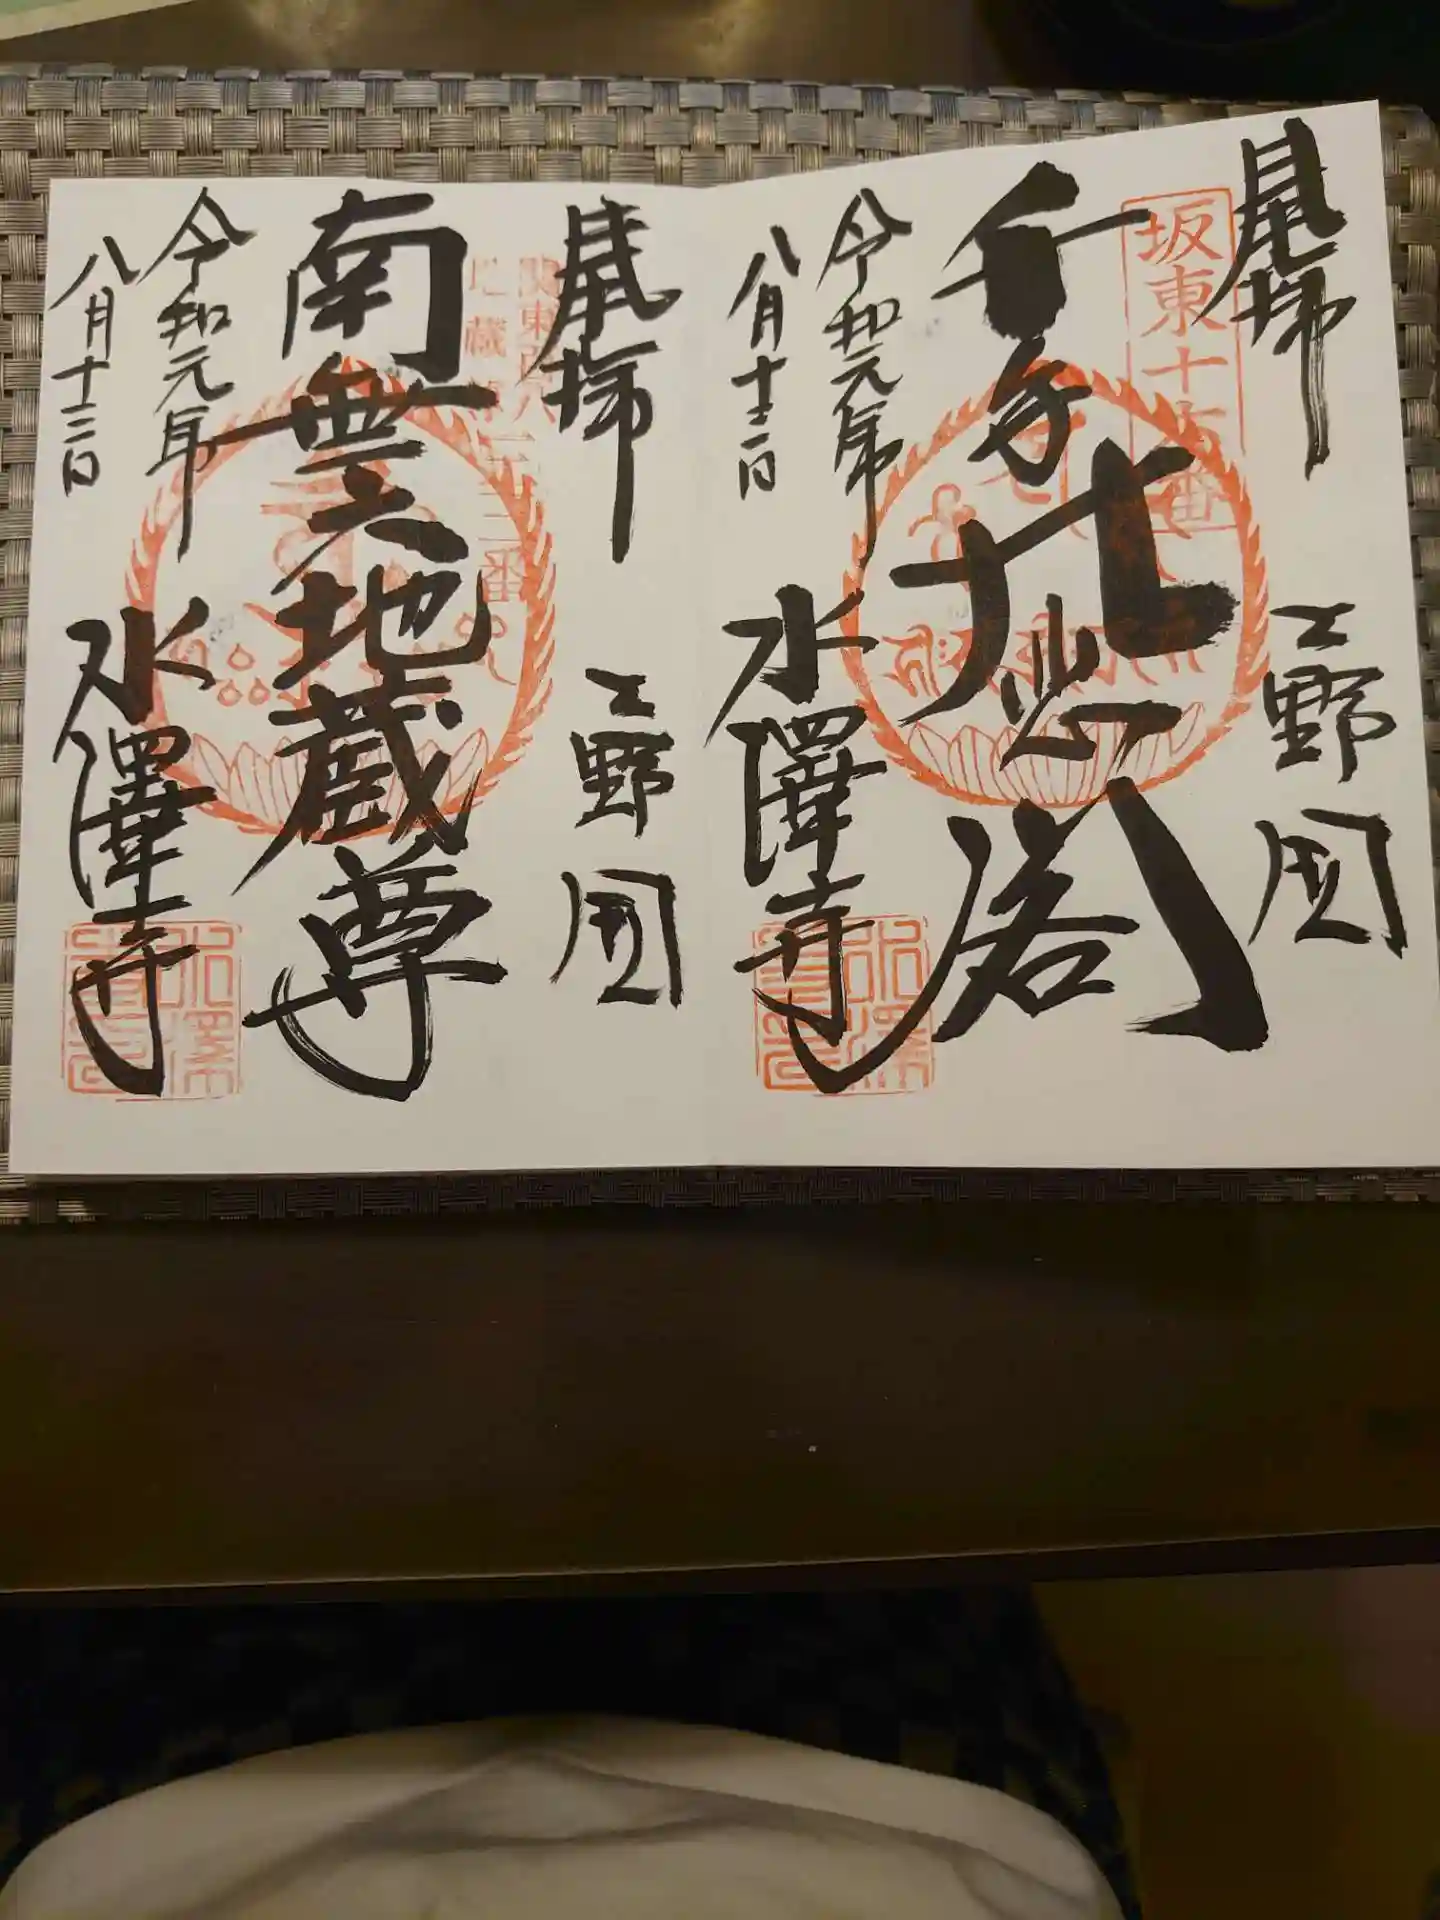 奉拝
上野国
坂東十六番
千手大悲閣
令和元年
八月十二日
水澤寺
奉拝
上野国
三十三番
南無六地蔵尊
令和元年
八月十二日
水澤寺